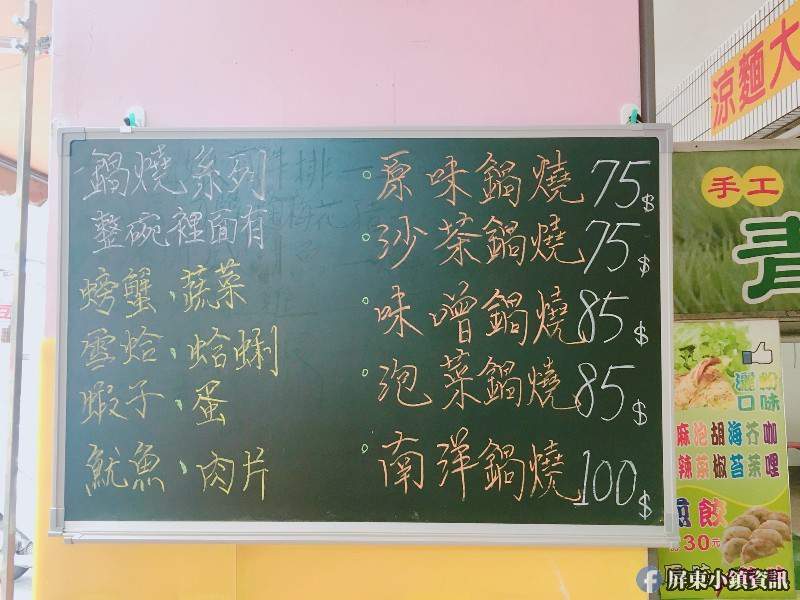 鍋燒系列
整碗裡面有
螃蟹、蔬菜
雪蛤、蛤蜊
蝦子、蛋
魷魚、肉片
原味鍋燒75$
沙茶鍋燒75$
味噌鍋燒85$
泡菜鍋燒85$
南洋鍋燒100$
涼麵大
手工
青
口味
麻泡胡海芥咖
辣菜椒苔茉哩
煎餃
30元
屏東小鎮資訊